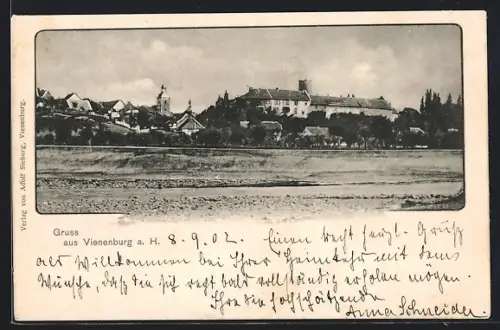 Verlag von Adolf Sieberg, Vienenburg.
Gruss
aus Vienenburg a. H. 8. 9. 02. Einen recht herzl. Gruß
als Willkommen bei Ihrer Heimkehr mit dem
Wunsche, daß Sie sich recht bald vollständig erholen mögen.
Ihre Sie hochschätzende
Anna Schneider.